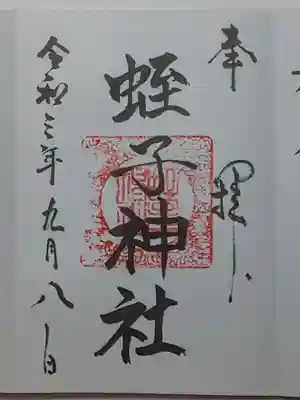 奉拝
蛭子神社
令和三年九月八日